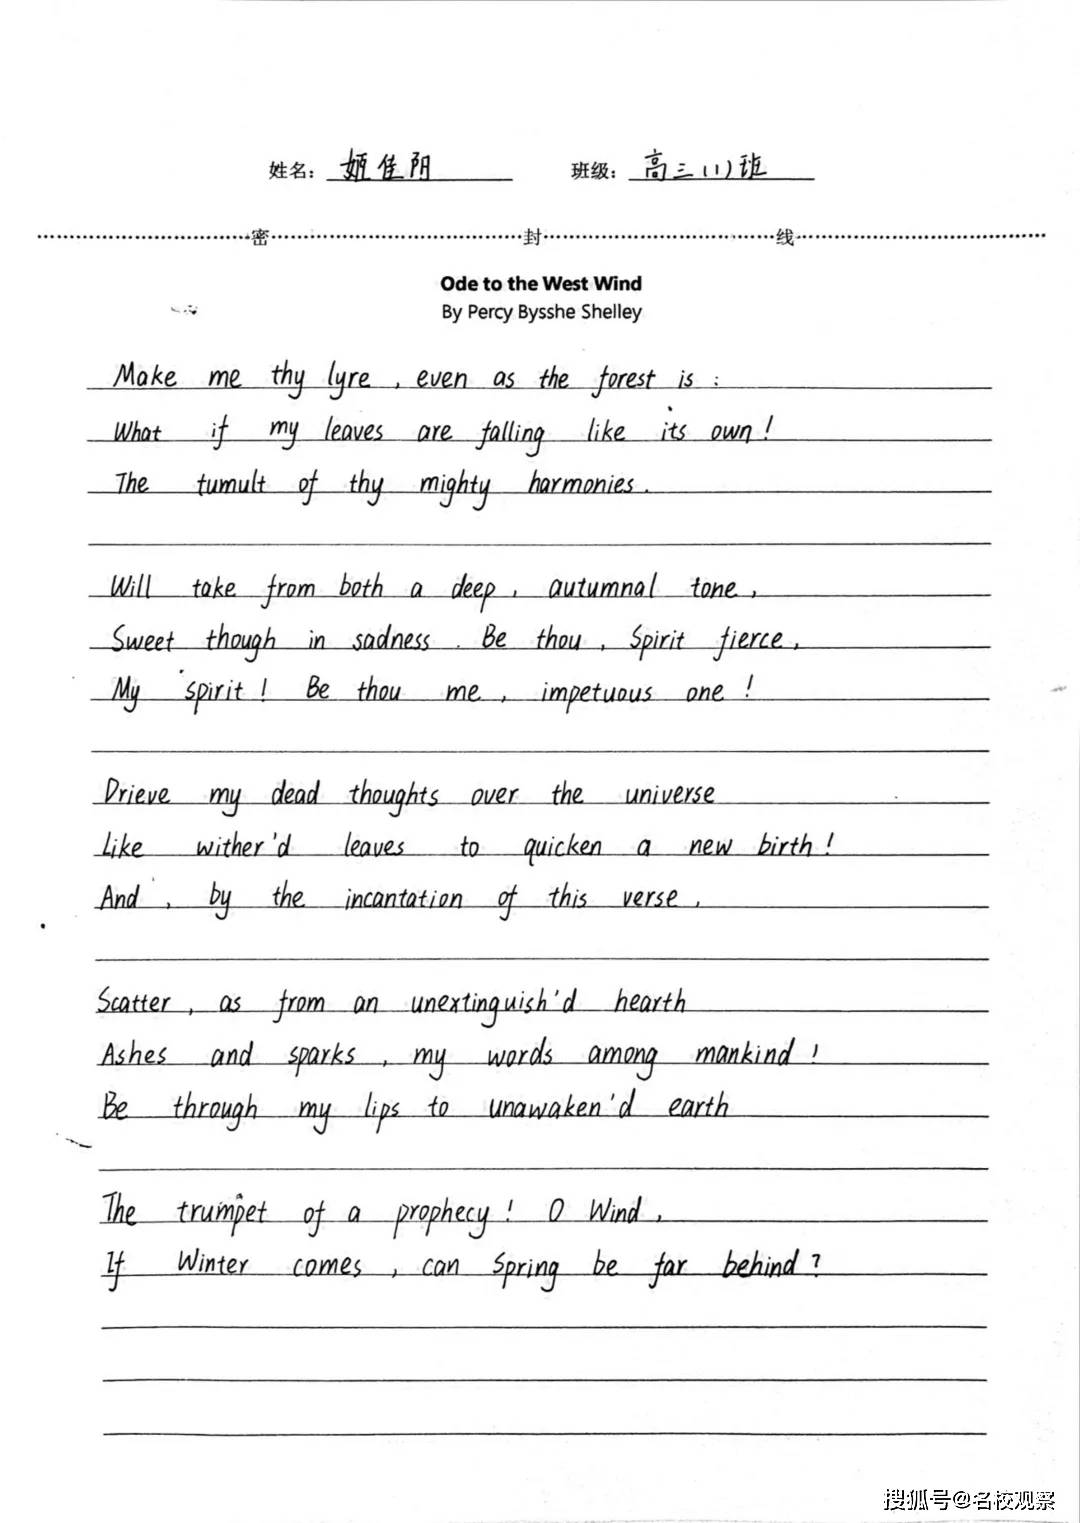 姓名： 姬佳阴 班级： 高三(1)班
密 封 线
Ode to the West Wind
By Percy Bysshe Shelley
Make me thy lyre , even as the forest is :
What if my leaves are falling like its own !
The tumult of thy mighty harmonies .
Will take from both a deep , autumnal tone ,
Sweet though in sadness . Be thou , Spirit fierce ,
My spirit ! Be thou me , impetuous one !
Drieve my dead thoughts over the universe
Like wither'd leaves to quicken a new birth !
And , by the incantation of this verse ,
Scatter , as from an unextinguish'd hearth
Ashes and sparks , my words among mankind !
Be through my lips to unawaken'd earth
The trumpet of a prophecy ! O Wind ,
If Winter comes , can Spring be far behind ?
搜狐号@名校观察